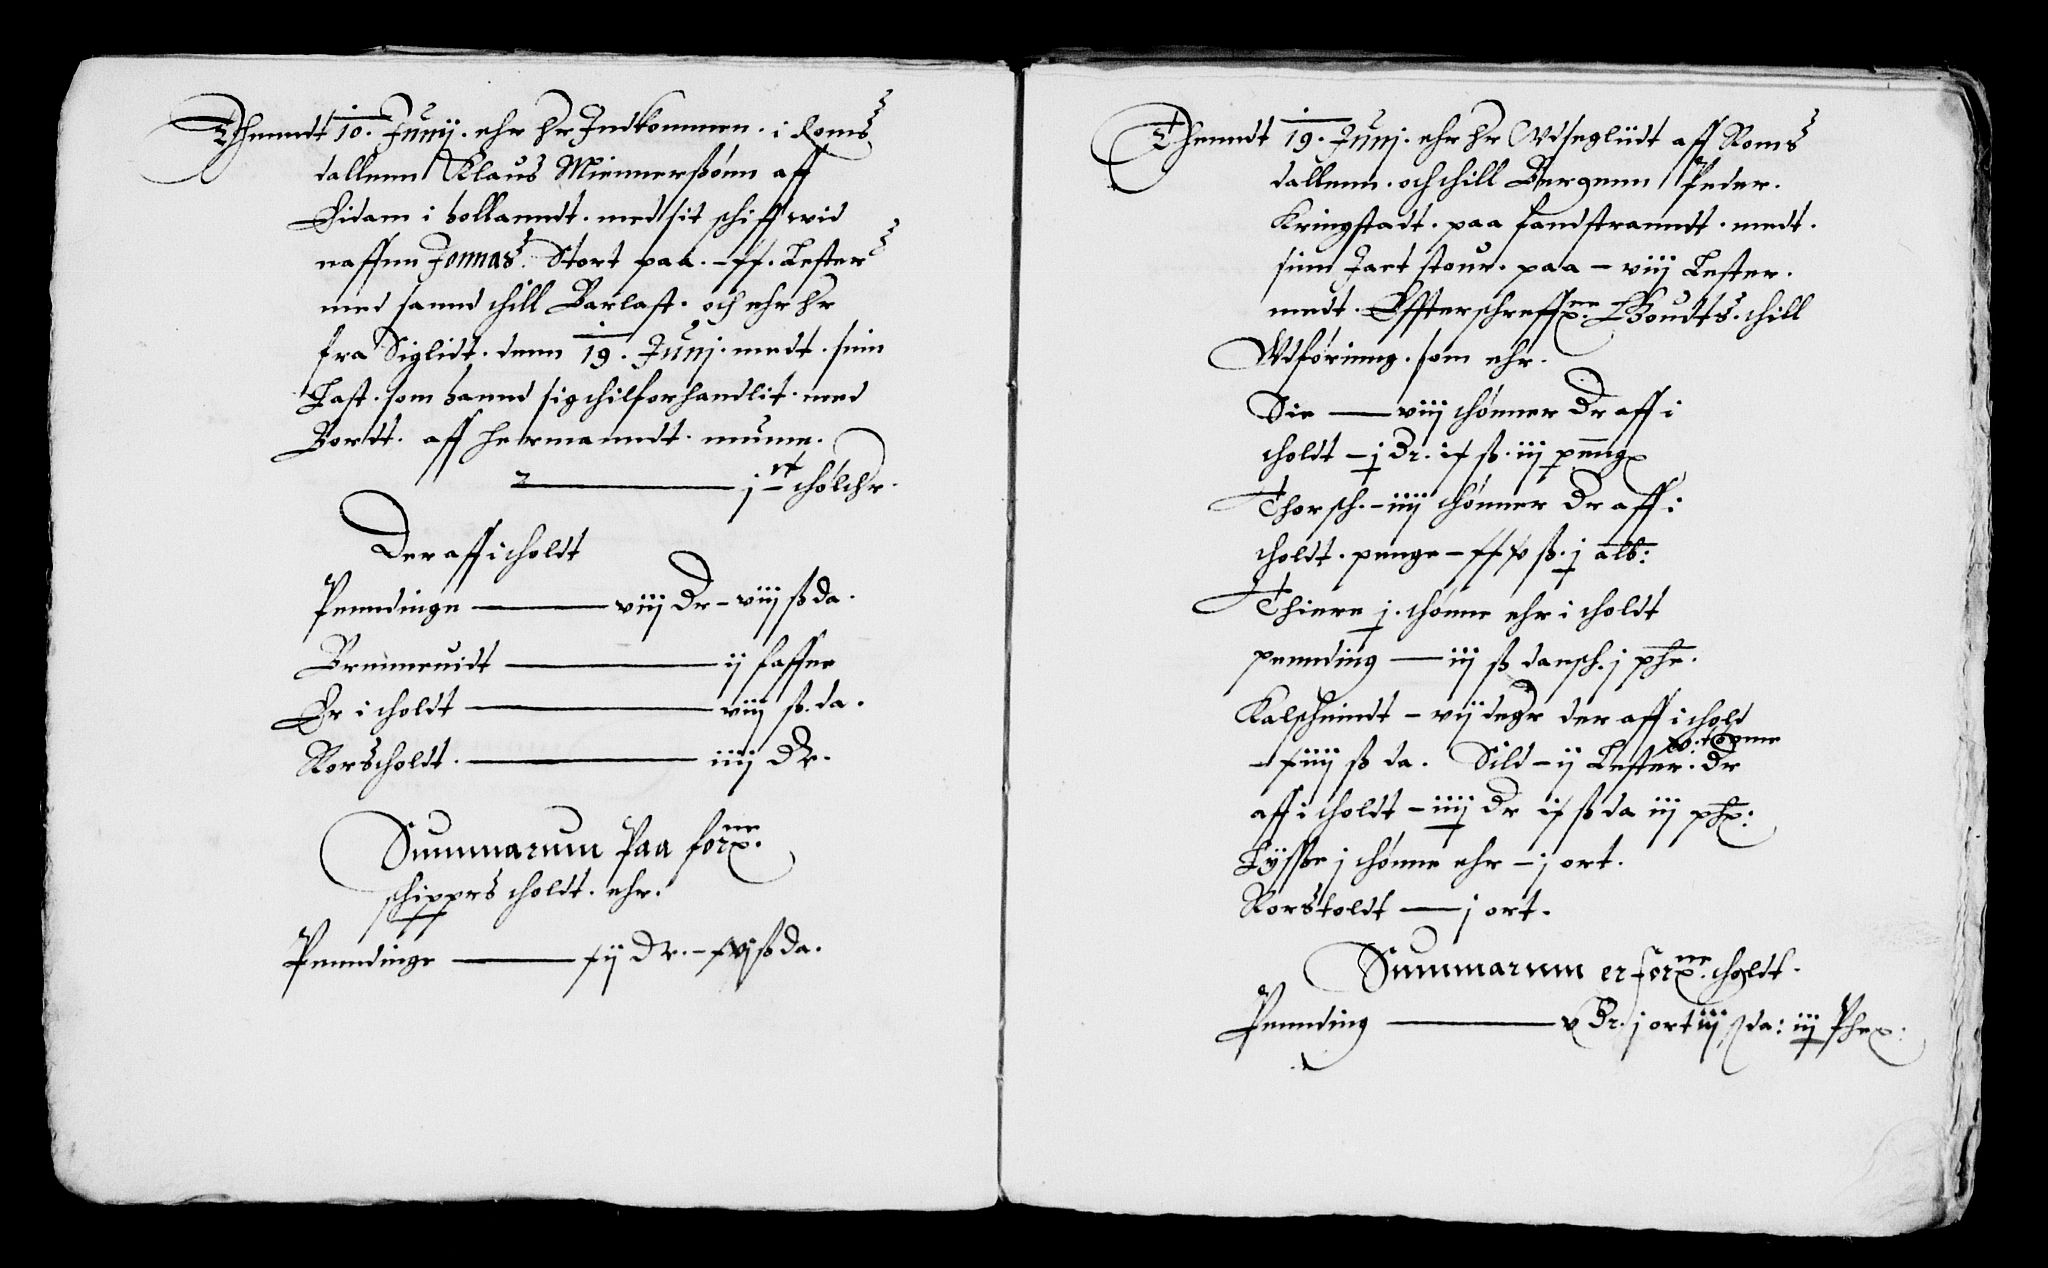 Thenndt 10. Junij. ehr hr Indkommen. i Roms
dallenn Klaus Miennersßønn aff
Eidam i hollanndt. med sit schiff wid
naffnn Jonnas. Stort paa. - ff. Lester
med sannd thill Barlast. och ehr hr
fra Siglidt. denn 19. Junj. medt. sinn
Last. som hannd sig thilforhandlit. med
Bordt. aff hermanndt. mume.
2 —— j thølthr.
Der aff i tholdt
Penndinge —— viij Dr - viij ß da.
Brenneuidt —— ij faffne
Er i tholdt —— viij ß. da.
Rorstholdt. —— iiij Dr.
Summarum Paa forne
schippers tholdt. ehr.
Penndinge —— xij Dr. - xvj ß da.
Thenndt 19. Junj. ehr hr Wdsegliidt aff Roms
dallenn. och thill Bergenn Peder.
Kringstadt. paa sandstranndt. medt.
sinn Jact stour. paa - viij Lester.
medt. Effterschreffne Goudts. thill
Wdføring. som ehr.
Sie —— viij thønner Dr aff i
tholdt - j Dr. ix ß. iij penng
Thorsch. - iiij thønner Dr aff i
tholdt. penge - xxv ß. j alb:
Thiere j. thønne ehr i tholdt
pennding —— iij ß dansch. j phe.
Kalschiindt - vij degr der aff i thold
- xiiij ß da. Sild - ij Lester. Dr
iv: tønne
aff i tholdt - iiij Dr ix ß da iij phe:
Lysße j thønne ehr - j ort.
Rorstoldt —— j ort.
Summarum er forne. tholdt.
Pennding —— v Dr. j ort iij ß da: iij Phe: